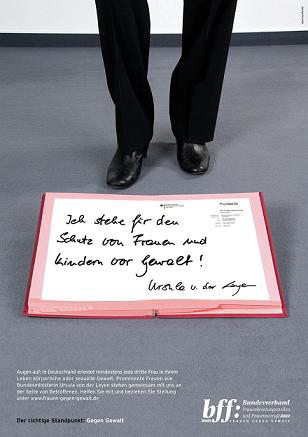 Ich stehe für den
Schutz von Frauen und
Kindern vor Gewalt!
Ursula v. der Leyen
Augen auf: In Deutschland erleidet mindestens jede dritte Frau in ihrem
Leben körperliche oder sexuelle Gewalt. Prominente Frauen wie
Bundesministerin Ursula von der Leyen stehen gemeinsam mit uns an
der Seite von Betroffenen. Helfen Sie mit und beziehen Sie Stellung
unter www.frauen-gegen-gewalt.de
Der richtige Standpunkt: Gegen Gewalt
bff: Bundesverband
Frauenberatungsstellen
und Frauennotrufe
FRAUEN GEGEN GEWALT